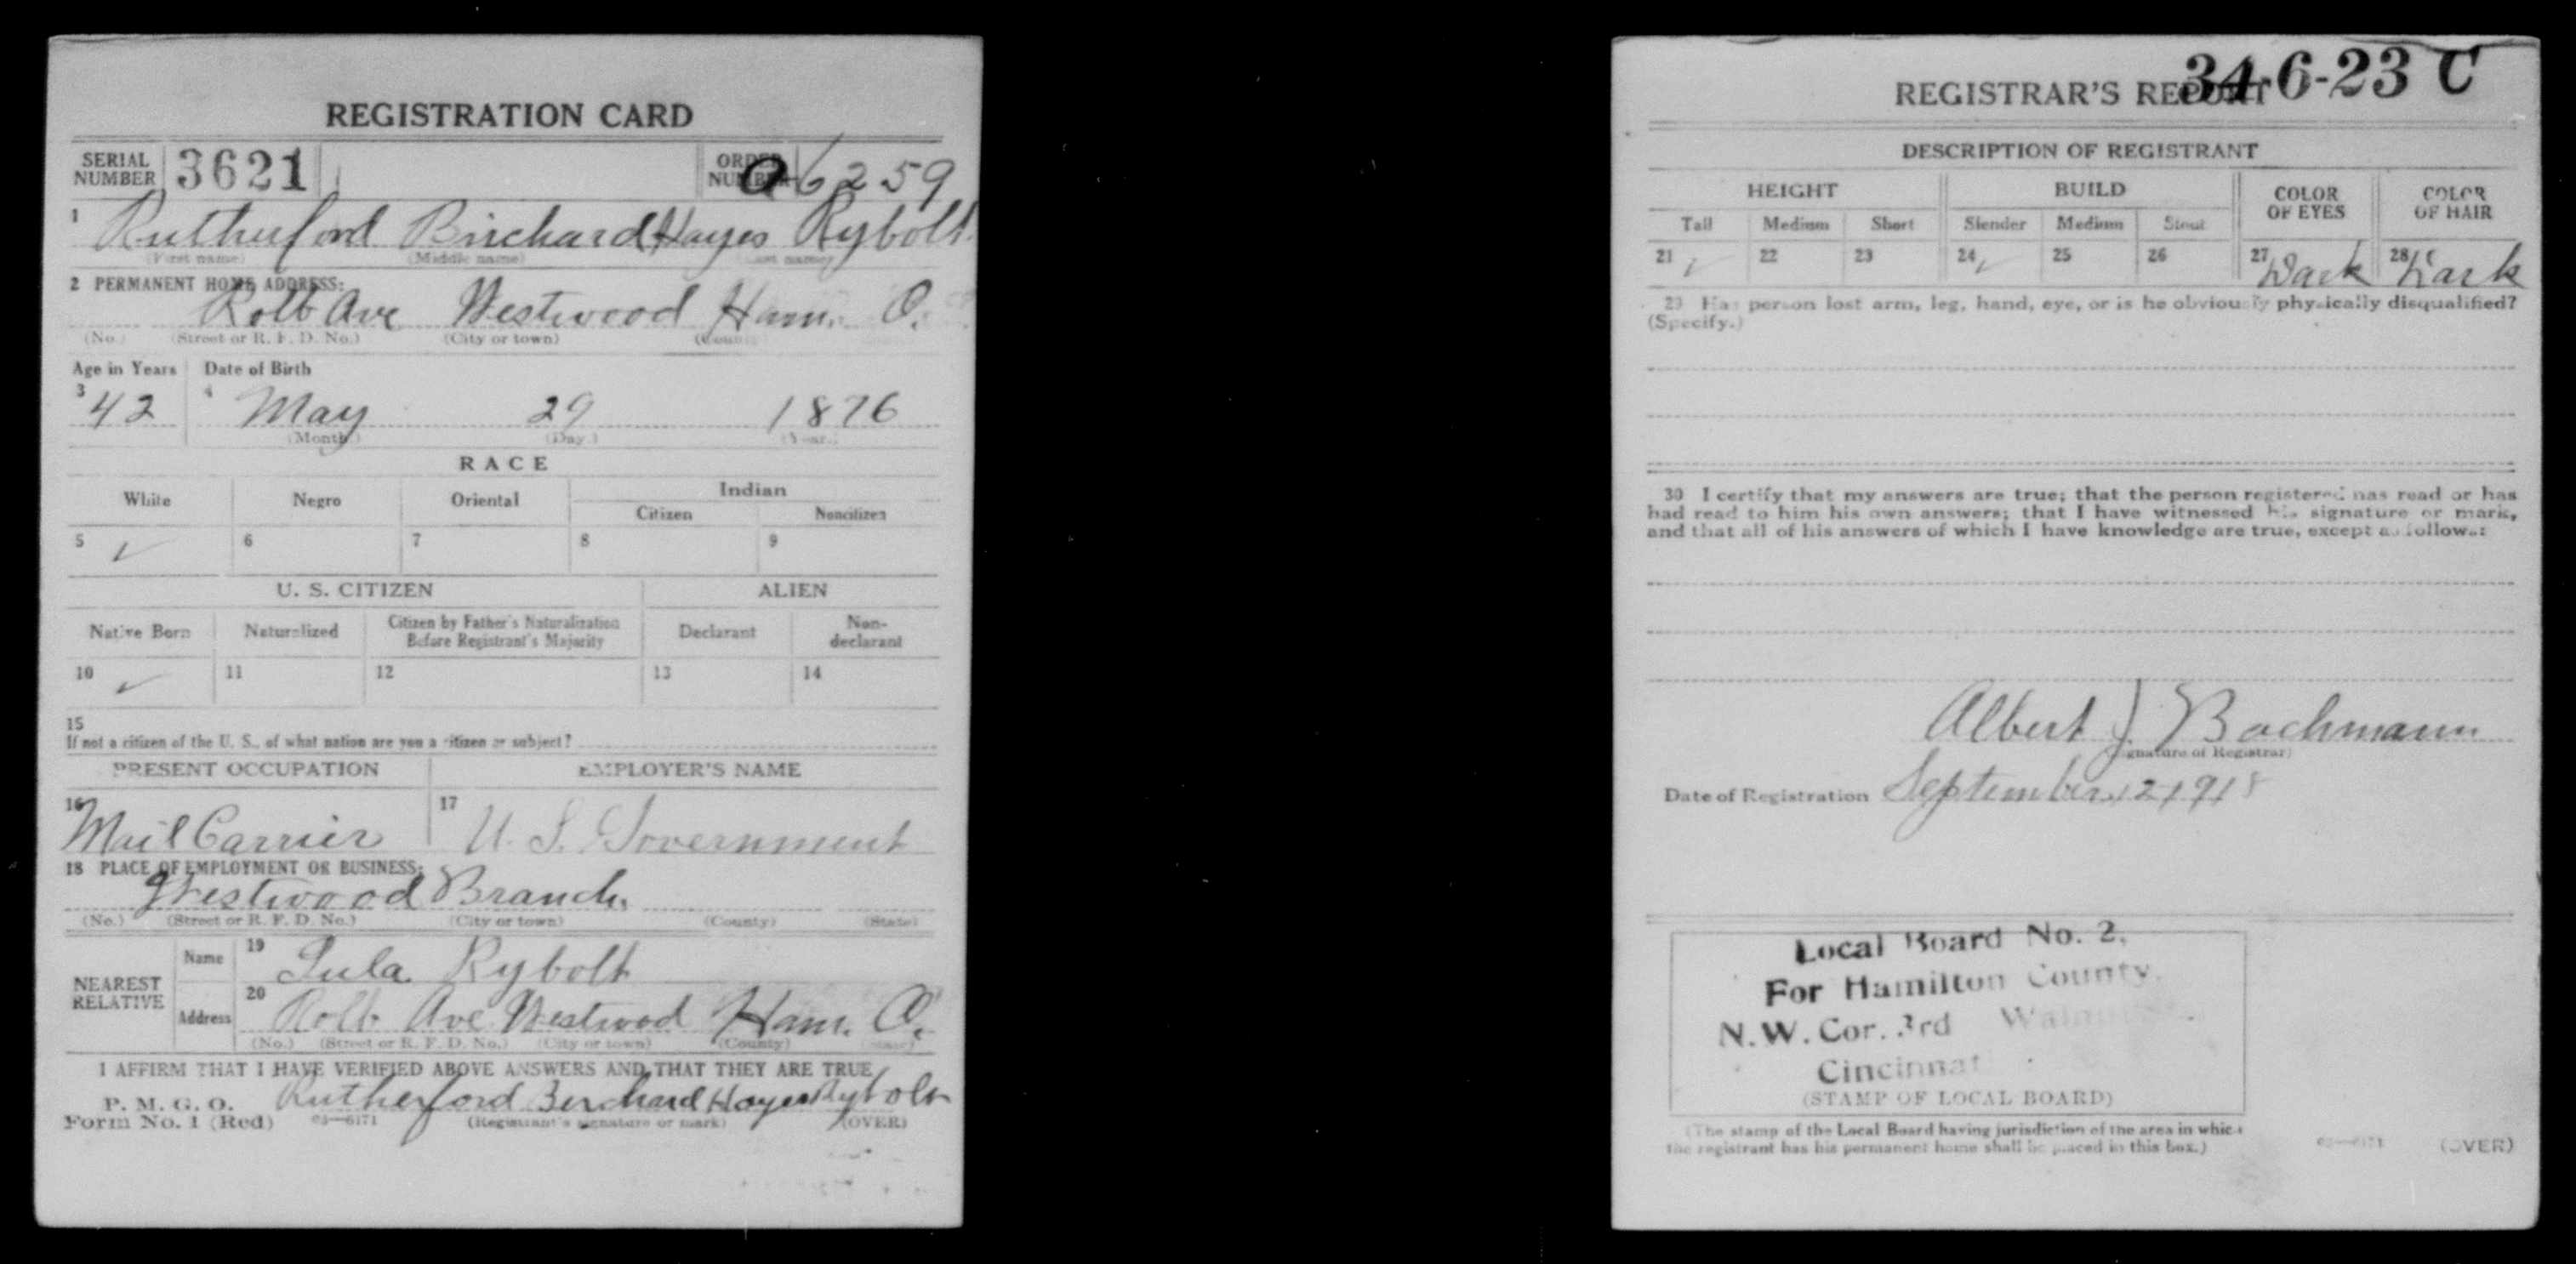 REGISTRATION CARD
SERIAL NUMBER 3621 ORDER NUMBER a 6259
1 Rutherford Birchard Hayes Rybolt
(First name) (Middle name) (Last name)
2 PERMANENT HOME ADDRESS:
Rolb Ave Westwood Ham. O.
(No.) (Street or R. F. D. No.) (City or town) (County)
Age in Years Date of Birth
3 42 4 May 29 1876
(Month) (Day) (Year)
RACE
White Negro Oriental Indian
Citizen Noncitizen
5 ✓ 6 7 8 9
U. S. CITIZEN ALIEN
Native Born Naturalized Citizen by Father's Naturalization Before Registrant's Majority Declarant Non-declarant
10 ✓ 11 12 13 14
15
If not a citizen of the U. S., of what nation are you a citizen or subject?
PRESENT OCCUPATION EMPLOYER'S NAME
16 Mail Carrier 17 U. S. Government
18 PLACE OF EMPLOYMENT OR BUSINESS:
Westwood Branch.
(No.) (Street or R. F. D. No.) (City or town) (County) (State)
NEAREST RELATIVE
Name 19 Lula Rybolt
Address 20 Rolb Ave Westwood Ham. O.
(No.) (Street or R. F. D. No.) (City or town) (County) (State)
I AFFIRM THAT I HAVE VERIFIED ABOVE ANSWERS AND THAT THEY ARE TRUE
P. M. G. O.
Form No. 1 (Red) 03—6171 Rutherford Berchard Hayes Rybolt
(Registrant's signature or mark) (OVER)
34-6-23 C
REGISTRAR'S REPORT
DESCRIPTION OF REGISTRANT
HEIGHT BUILD COLOR OF EYES COLOR OF HAIR
Tall Medium Short Slender Medium Stout
21 ✓ 22 23 24 ✓ 25 26 27 Dark 28 Dark
29 Has person lost arm, leg, hand, eye, or is he obviously physically disqualified?
(Specify.)
30 I certify that my answers are true; that the person registered has read or has
had read to him his own answers; that I have witnessed his signature or mark,
and that all of his answers of which I have knowledge are true, except as follows:
Albert J. Bachmann
(Signature of Registrar)
Date of Registration September 12 1918
Local Board No. 2,
For Hamilton County,
N.W. Cor. 3rd Walnut
Cincinnati
(STAMP OF LOCAL BOARD)
(The stamp of the Local Board having jurisdiction of the area in which
the registrant has his permanent home shall be placed in this box.)
03—6171 (OVER)